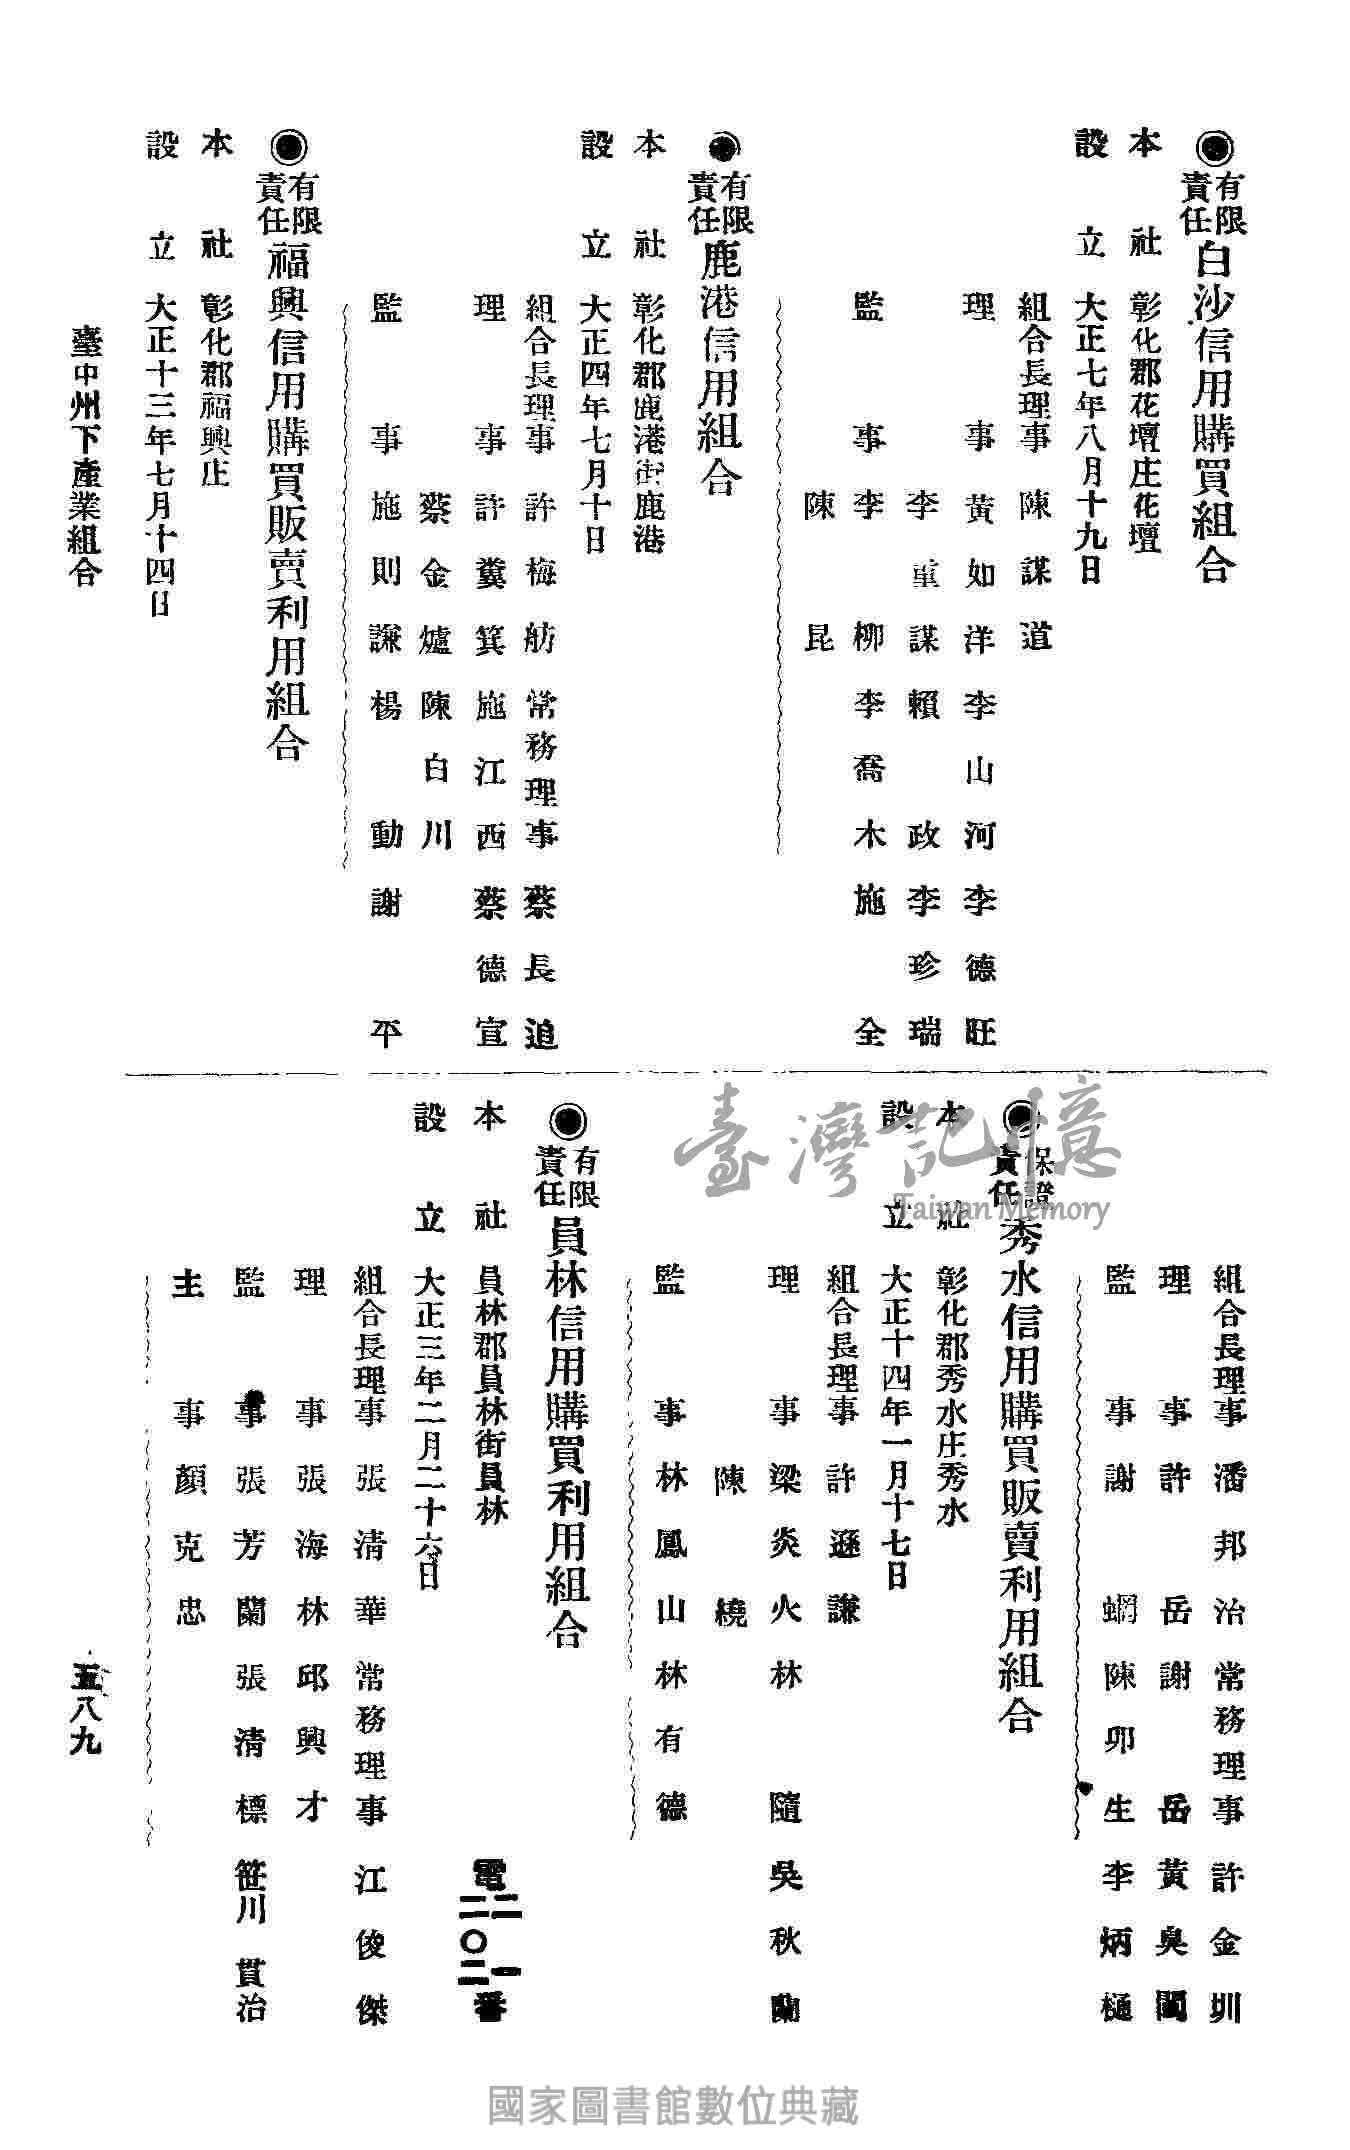 ◉有限責任白沙信用購買組合
本社 彰化郡花壇庄花壇
設立 大正七年八月十九日
組合長理事 陳謀道
理事 黃如洋 李山河 李德旺
李重謀 賴政 李珍瑞
監事 李柳 李喬木 施全
陳昆
◉有限責任鹿港信用組合
本社 彰化郡鹿港街鹿港
設立 大正四年七月十日
組合長理事 許梅舫 常務理事 蔡長追
理事 許冀箕 施江西 蔡德宣
蔡金爐 陳白川
監事 施則謙 楊動 謝平
◉有限責任福興信用購買販賣利用組合
本社 彰化郡福興庄
設立 大正十三年七月十四日
組合長理事 潘邦治 常務理事 許金圳
理事 許岳 謝岳 黃臭
監事 謝 陳卯生 李炳樋
◉保證責任秀水信用購買販賣利用組合
本社 彰化郡秀水庄秀水
設立 大正十四年一月十七日
組合長理事 許遜謙
理事 梁炎火 林隨 吳秋蘭
陳繞
監事 林鳳山 林有德
◉有限責任員林信用購買利用組合
本社 員林郡員林街員林 電二〇二 二一番
設立 大正三年二月二十六日
組合長理事 張清華 常務理事 江俊傑
理事 張海林 邱興才
監事 張芳蘭 張清標 笹川貫治
主事 顏克忠
臺中州下產業組合
五八九
臺灣記憶
Taiwan Memory
國家圖書館數位典藏